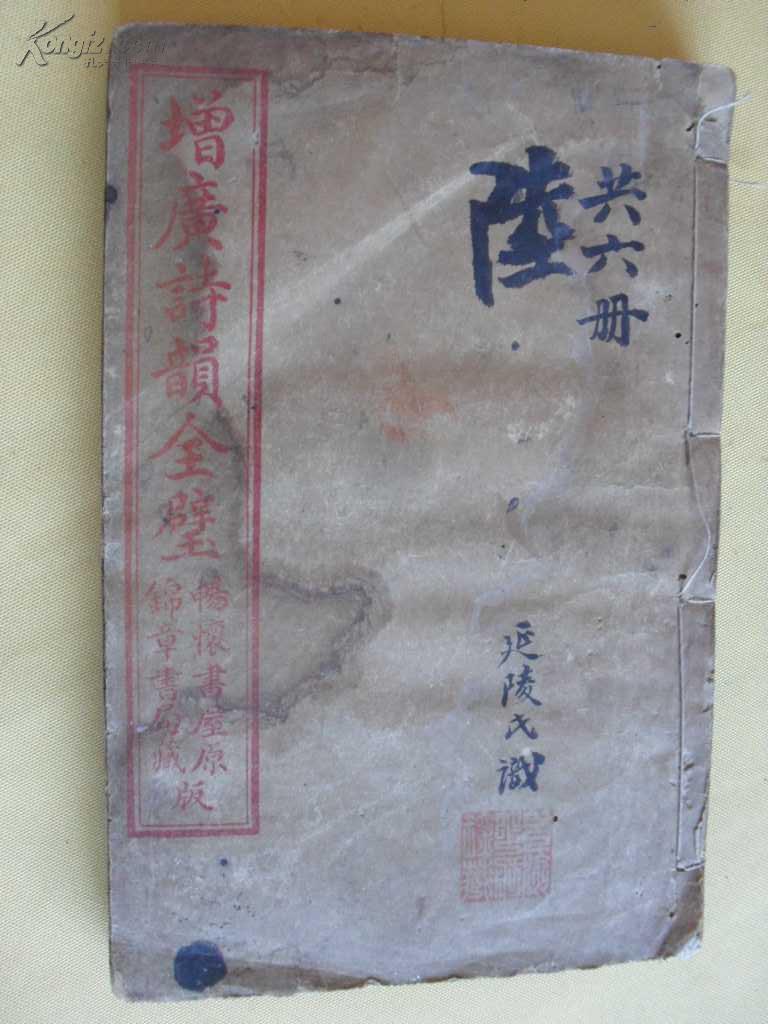 Kongfz.com
增廣詩韻全璧
暢懷書屋原版
錦章書局藏
共六册
陸
延陵氏識